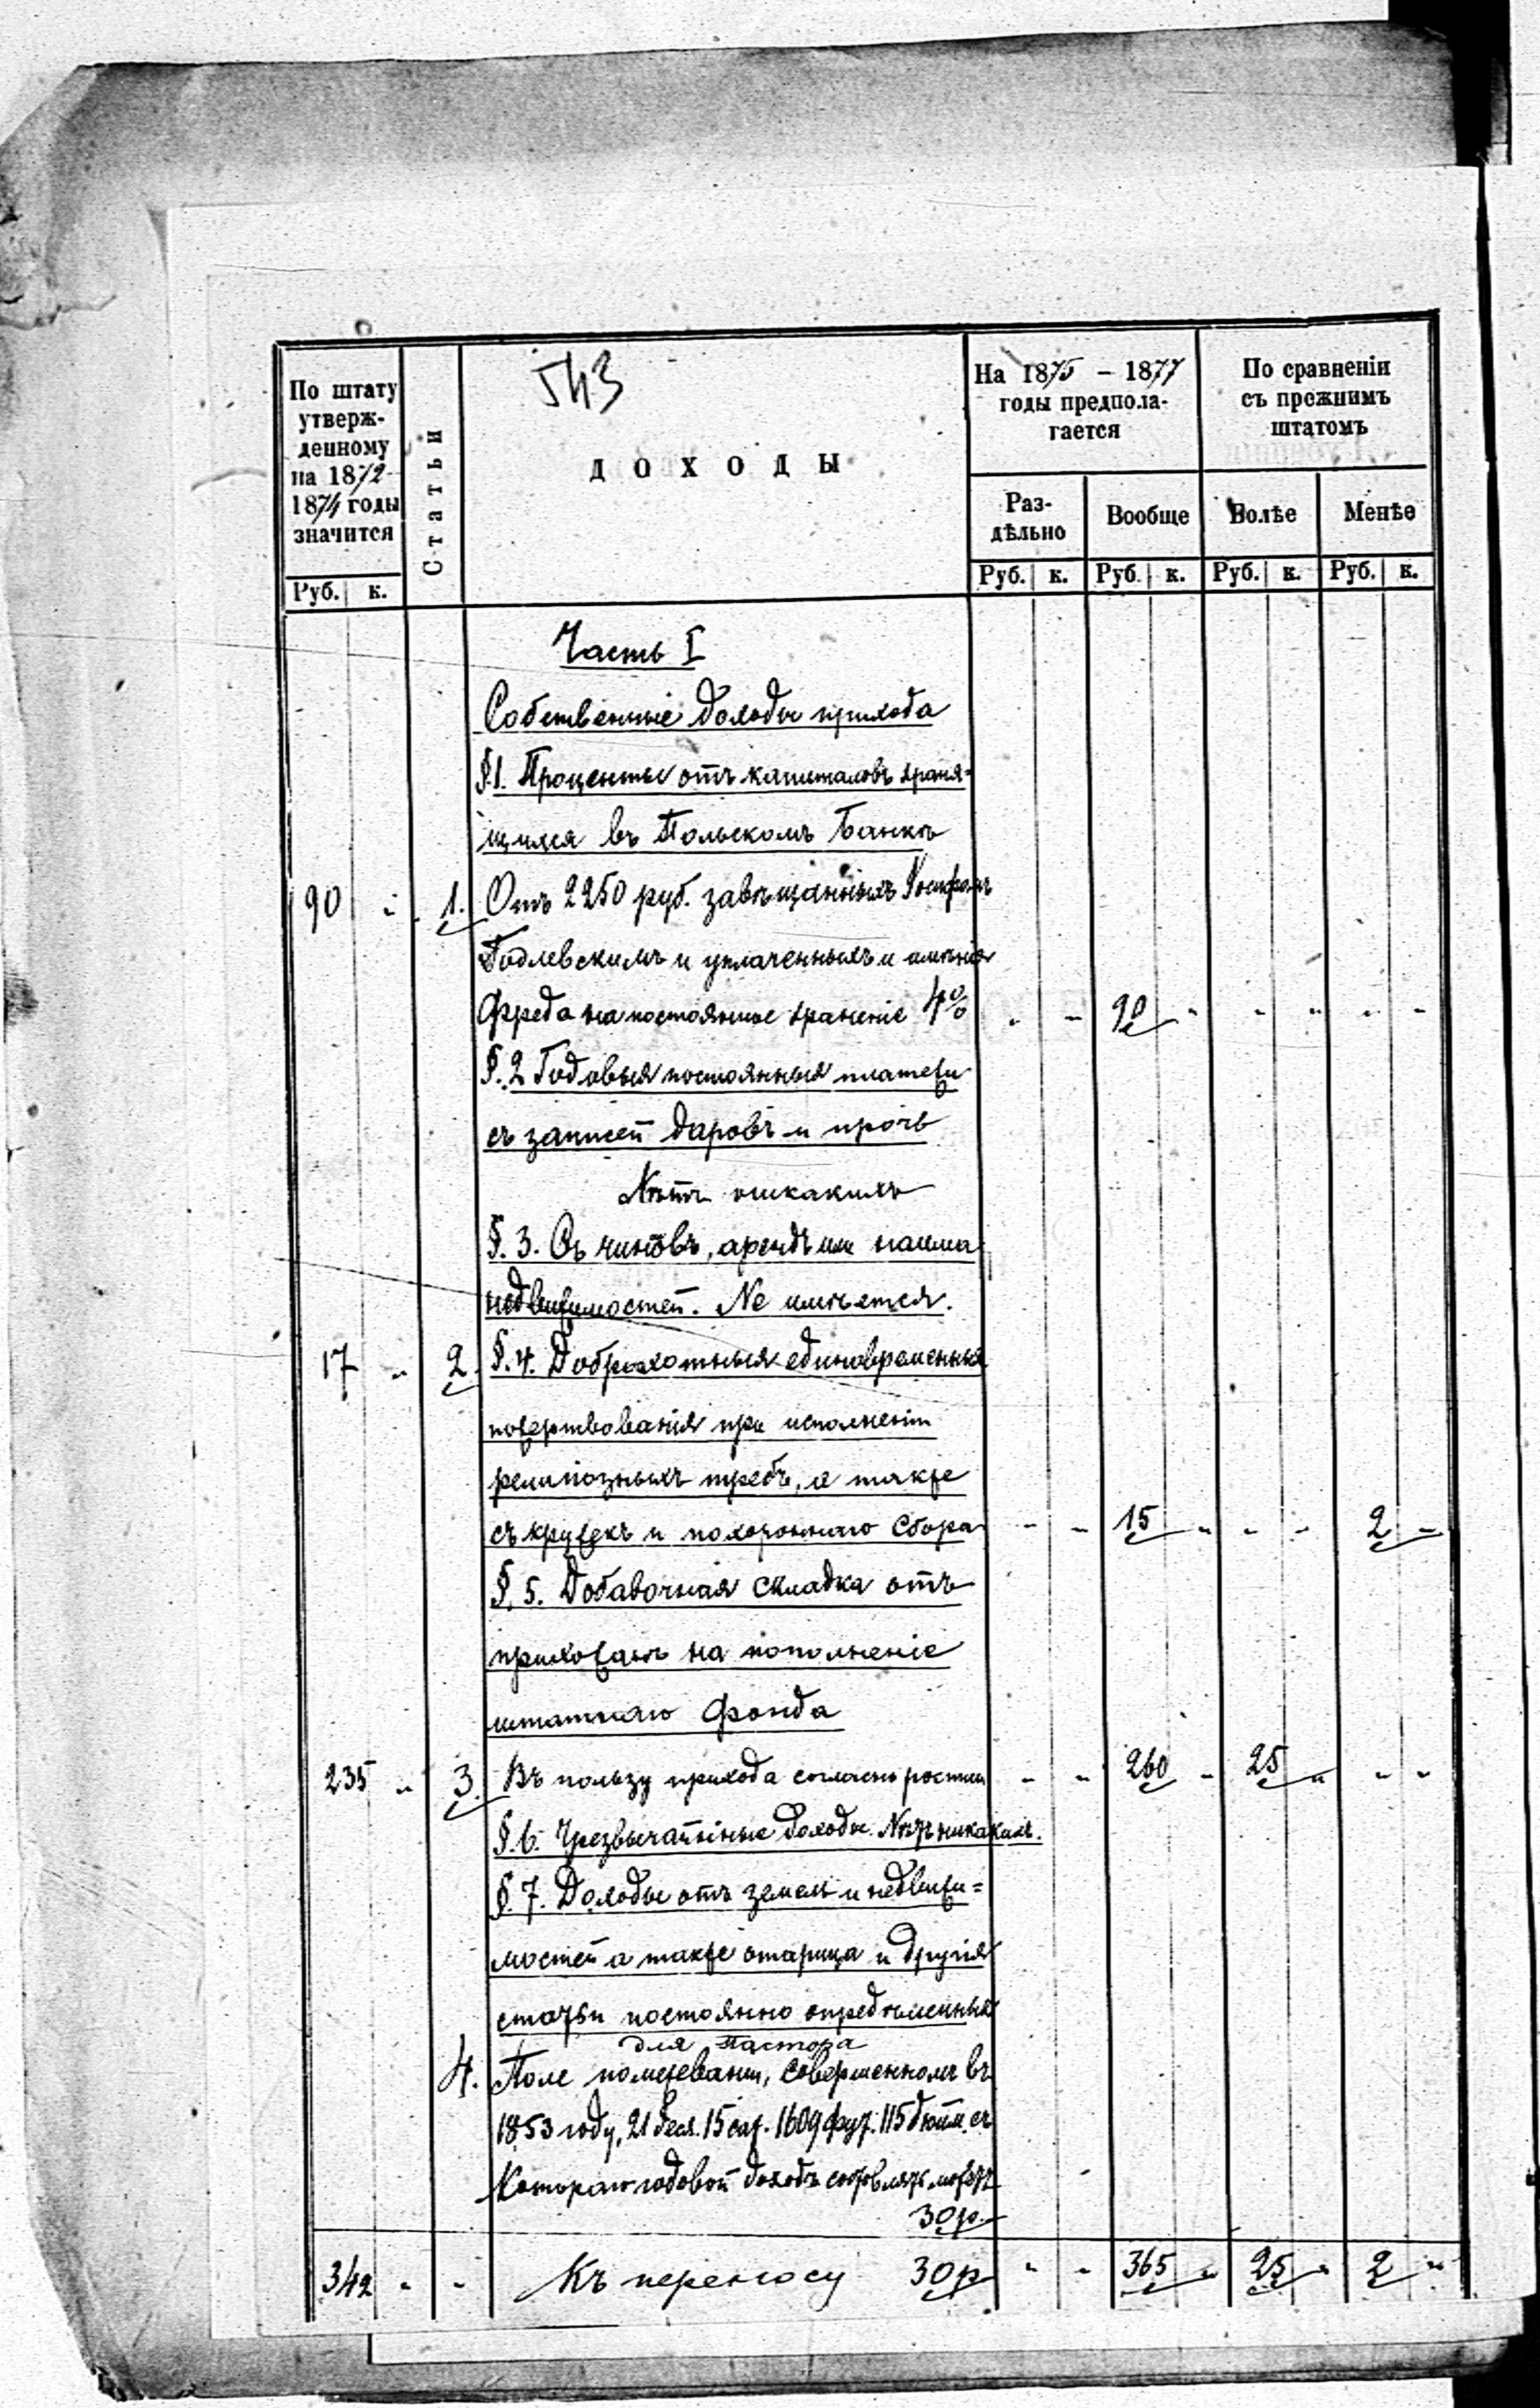 543
По штату
утверж-
денному
на 1872-
1874 годы
значится
Статьи
ДОХОДЫ
На 1875 – 1877
годы предпола-
гается
По сравненіи
съ прежнимъ
штатомъ
Раз-
дѣльно
Вообще
Болѣе
Менѣе
Руб. к.
Руб. к. Руб. к. Руб. к. Руб. к.
Часть I
Собственные доходы прихода
§.1. Проценты отъ капиталовъ храня-
щихся въ Польскомъ Банкѣ
90 " 1. Отъ 2250 руб. завѣщанныхъ
Годлевскимъ и уплаченныхъ и имѣнія
Фреда на постоянное храненіе 4% " " 90 " " " " "
§.2 Годовыя постоянныя платежи
съ записей даровъ и прочь
Нѣтъ никакихъ
§.3. Съ чиншовъ, арендъ или найма
недвижимостей. Не имѣется.
17 " 2. §.4. Доброхотныя единовременныя
пожертвованія при исполненіи
религіозныхъ требъ, а также
съ кружекъ и похороннаго сбора " " 15 " " " 2 "
§.5. Добавочная складка отъ
прихожанъ на пополненіе
штатнаго фонда
235 " 3. Въ пользу прихода согласно росписи " " 260 " 25 " " "
§.6. Чрезвычайные доходы. Нѣтъ никакихъ.
§.7. Доходы отъ земель и недвижи=
мостей а также и другія
статьи постоянно опредѣленныя
для Пастора
4. Поле помежеваніи, совершенномъ въ
1853 году, 21 деся. 15 саж. 1609 фут. 115 дюйм. съ
Котораго годовой доходъ составлять можетъ
30р.
342 " " Къ переносу 30р " " 365 " 25 " 2 "